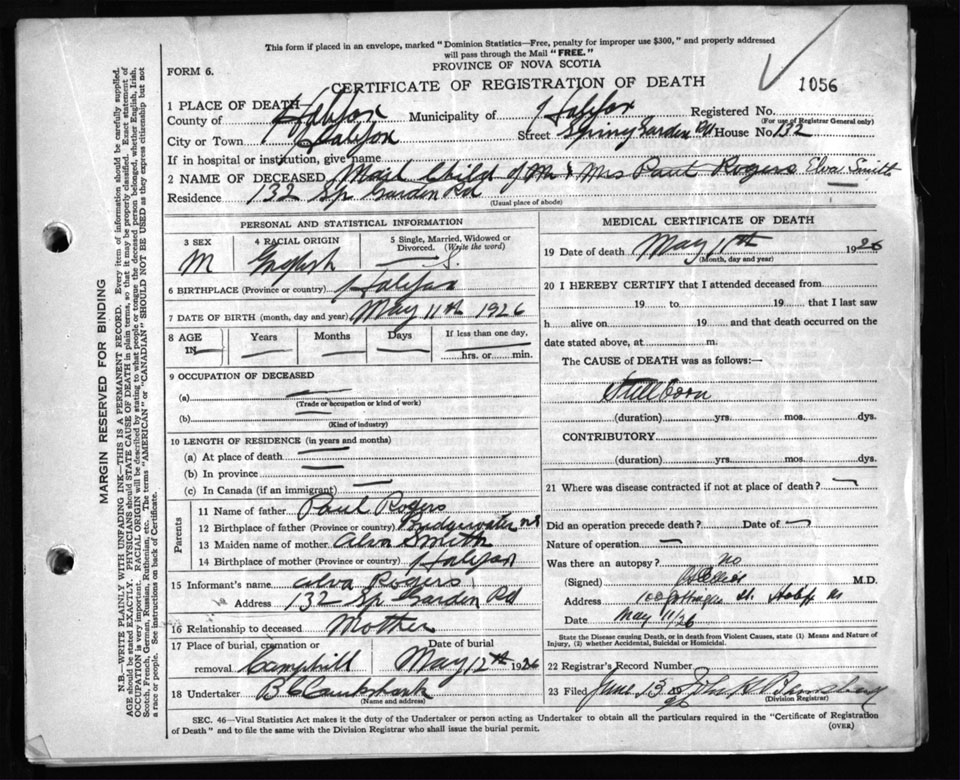 This form if placed in an envelope, marked "Dominion Statistics—Free, penalty for improper use $300," and properly addressed
will pass through the Mail "FREE."
PROVINCE OF NOVA SCOTIA
FORM 6.
CERTIFICATE OF REGISTRATION OF DEATH
1056
1 PLACE OF DEATH—
County of Halifax Municipality of Halifax Registered No.
(For use of Registrar General only)
City or Town Halifax Street Spring Garden Rd House No. 132
If in hospital or institution, give name
2 NAME OF DECEASED Male Child of Mr & Mrs Paul Rogers Elva Smith
Residence 132 Sp Garden Rd
(Usual place of abode)
PERSONAL AND STATISTICAL INFORMATION
3 SEX 4 RACIAL ORIGIN 5 Single, Married, Widowed or Divorced. (Write the word)
M English S.
6 BIRTHPLACE (Province or country) Halifax
7 DATE OF BIRTH (month, day and year) May 11th 1926
8 AGE IN Years Months Days If less than one day, hrs. or min.
9 OCCUPATION OF DECEASED
(a)
(Trade or occupation or kind of work)
(b)
(Kind of industry)
10 LENGTH OF RESIDENCE (in years and months)
(a) At place of death
(b) In province
(c) In Canada (if an immigrant)
Parents
11 Name of father Paul Rogers
12 Birthplace of father (Province or country) Bridgewater NS
13 Maiden name of mother Alva Smith
14 Birthplace of mother (Province or country) Halifax
15 Informant's name Alva Rogers
Address 132 Sp Garden Rd
16 Relationship to deceased Mother
17 Place of burial, cremation or removal Date of burial
Camphill May 12th 1926
18 Undertaker
(Name and address)
MEDICAL CERTIFICATE OF DEATH
19 Date of death May 11th 1926
(Month, day and year)
20 I HEREBY CERTIFY that I attended deceased from
19 to 19 that I last saw
h alive on 19 and that death occurred on the
date stated above, at m.
The CAUSE of DEATH was as follows:—
Stillborn
(duration) yrs. mos. dys.
CONTRIBUTORY
(duration) yrs. mos. dys.
21 Where was disease contracted if not at place of death?
Did an operation precede death? Date of
Nature of operation
Was there an autopsy? no
(Signed) M.D.
Address
Date May 11/26
State the Disease causing Death, or in death from Violent Causes, state (1) Means and Nature of
Injury, (2) whether Accidental, Suicidal or Homicidal.
22 Registrar's Record Number
23 Filed June 13 1926
(Division Registrar)
SEC. 46—Vital Statistics Act makes it the duty of the Undertaker or person acting as Undertaker to obtain all the particulars required in the "Certificate of Registration
of Death" and to file the same with the Division Registrar who shall issue the burial permit.
(OVER)
MARGIN RESERVED FOR BINDING
N.B.—WRITE PLAINLY WITH UNFADING INK—THIS IS A PERMANENT RECORD. Every item of information should be carefully supplied.
AGE should be stated EXACTLY. PHYSICIANS should STATE CAUSE OF DEATH in plain terms, so that it may be properly classified. Exact statement of
OCCUPATION is very important. RACIAL ORIGIN will be described by stating to what people or tongue the deceased person belonged, whether English, Irish,
Scotch, French, German, Russian, Ruthenian, etc. The terms "AMERICAN" or "CANADIAN" SHOULD NOT BE USED as they express citizenship but not
a race or people. See instructions on back of Certificate.